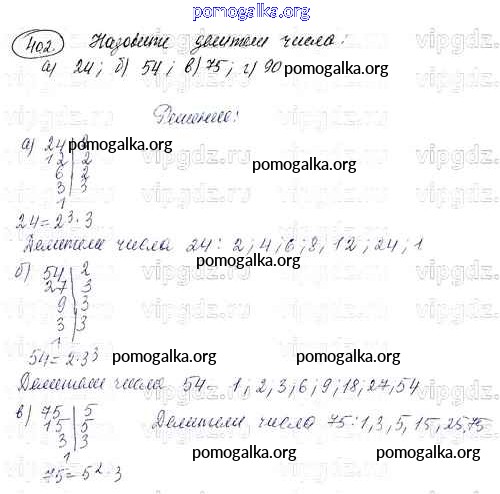 pomogalka.org
402. Назовите делители числа:
а) 24; б) 54; в) 75; г) 90 pomogalka.org
Решение:
pomogalka.org
а) 24 | 2
12 | 2
6 | 2
3 | 3
1
pomogalka.org
24 = 2³·3
Делители числа 24: 2; 4; 6; 8; 12; 24; 1
б) 54 | 2
27 | 3
9 | 3
3 | 3
1
pomogalka.org
pomogalka.org
54 = 2·3³
pomogalka.org
Делители числа 54 - 1, 2, 3, 6, 9, 18, 27, 54
pomogalka.org
в) 75 | 5
15 | 5
3 | 3
1
Делители числа 75: 1, 3, 5, 15, 25, 75
pomogalka.org
75 = 5²·3
pomogalka.org
vipgdz.ru